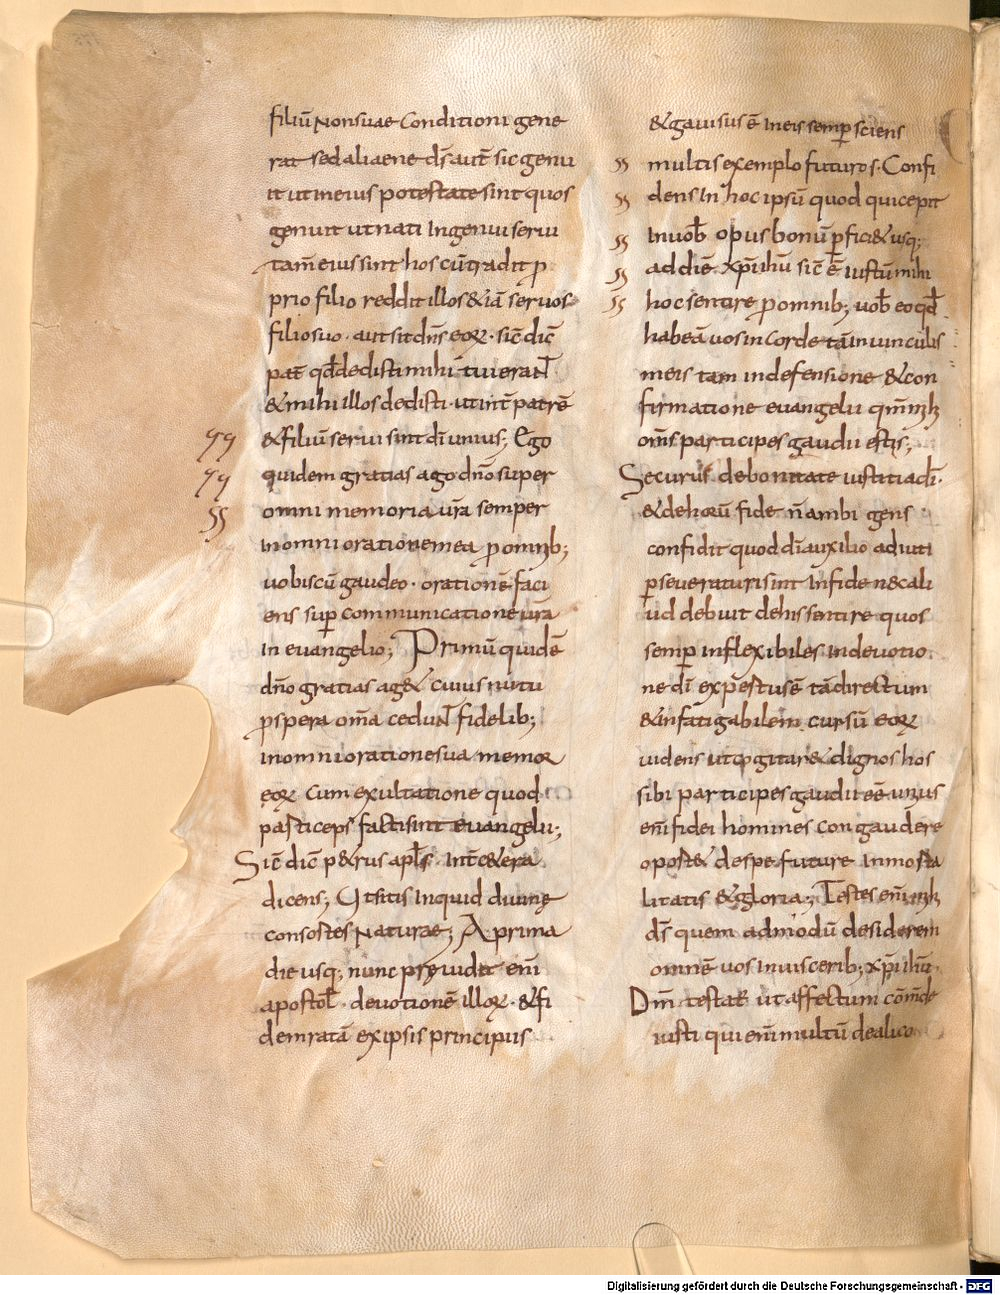 filiū Non suae Conditioni gene
rat sed alienae dš aut̄ sic genu
it ut in eius potestate sint quos
genuit ut nati Ingenui serui
tam̄ eius sint hos cū tradit p
prio filio reddit illos & iā seruos
filio suo · aut sit dn̄s eoꝝ · sic̄ dic̄
pat̄ qđ dedisti mihi tui eran̄t
& mihi illos dedisti · ut int̄ patrē
& filiū serui sint dī unius; Ego
quidem gratias ago dn̄o super
omni memoria ur̄a semper
In omni oratione mea p omnib;
uobiscū gaudeo · orationē faci
ens sup communicatione ur̄a
In euangelio; Primū quidē
dn̄o gratias ag& cuius nutu
pspera om̄a cedun̄t fidelib;
in omni oratione sua memor
eoꝝ cum exultatione quod
participes facti sint euangelii;
Sic̄ dic̄ p&rus apl̄s · Int̄ c&era
dicens; Ut sitis Inquid diuinę
consortes Naturae; A prima
die usq; nunc pręuidet eni̅
apostol̄ · deuotionē illoꝝ · & fi
dem ratā ex ipsis principiis
& gauisus ē In eis semp sciens
multis exemplo futuros · Confi
dens In hoc ipsū quod qui cepit
In uob̄ opus bonū pfici& usq;
ad diē xp̄i ih̄u sic̄ ē iustū mihi
hoc sentire p omnib; uob̄ eo qđ
habeā uos in corde tā in uinculis
meis tam in defensione & con
firmatione euangelii
om̄s participes gaudii estis;
Securus de bonitate iustitia dī ·
& de horū fide n̄ ambigens
confidit quod dī auxilio adiuti
pseueraturi sint In fide n& ali
ud debuit de his sentire quos
semp inflexibiles In deuotio
ne dī expertus ē tā directum
& infatigabilem cursū eoꝝ
uidens ut cogitar& dignos hos
sibi participes gaudii eē unius
eni̅ fidei homines congaudere
oport& de spe future Inmorta
litatis & gloria; Testes eni̅ mihi
dš quem admodū desiderem
omnē uos In uiscerib; xp̄i ih̄u ·
Dm̄ testat̄ ut affectum
iusti qui eni̅ multū de alico